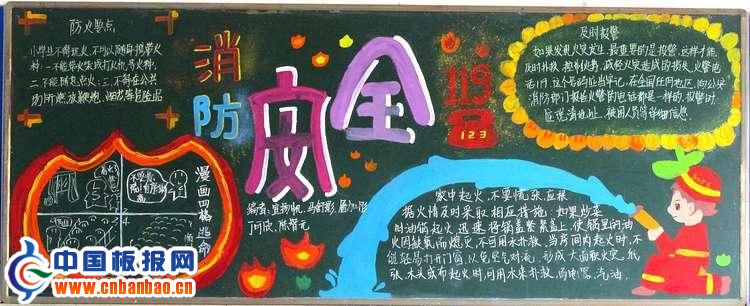 防火要点
小学生不得玩火,不可以随身携带火
种:一不能带火柴或打火机等火种,
二、不能随意点火;三、不得在公共
场所燃放鞭炮、烟花等危险品
消防
安全
119
123
及时报警
如果发现火灾发生,最重要的是报警,这样才能
及时扑救,控制火势,减轻火灾造成的损失,火警电
话119,这个号码应当牢记,在全国任何地区,向公安
消防部门报告火警的电话都是一样的,报警时
应说清地址、被困人员等详细信息.
漫画四格
逃命
编者:
家中起火,不要慌张,应根
据火情及时采取相应措施:如果炒菜
时油锅起火,迅速将锅盖紧紧盖上,使锅里的油
火因缺氧而熄灭,不可用水扑救,当房间内起火时,不
能轻易打开门窗,以免空气对流,形成大面积火灾,纸
张、木头或布起火时,可用水来扑救,而电器、汽油、
中国板报网
www.cnbanbao.cn